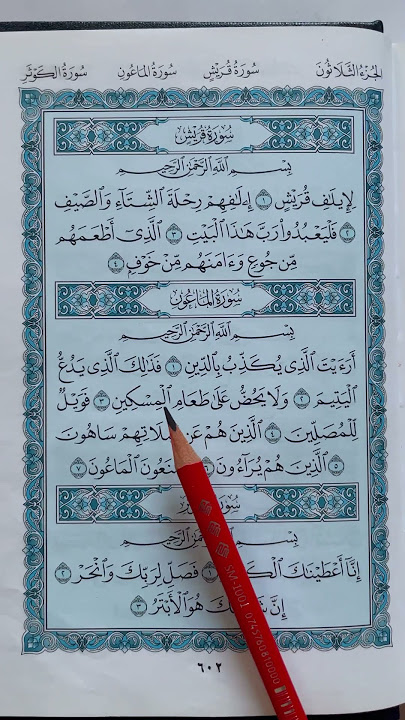 الجزء الثلاثون سورة قريش سورة الماعون سورة الكوثر
سورة قريش
بِسْمِ ٱللَّهِ ٱلرَّحْمَٰنِ ٱلرَّحِيمِ
لِإِيلَٰفِ قُرَيْشٍ ١ إِۦلَٰفِهِمْ رِحْلَةَ ٱلشِّتَآءِ وَٱلصَّيْفِ
٢ فَلْيَعْبُدُوا۟ رَبَّ هَٰذَا ٱلْبَيْتِ ٣ ٱلَّذِىٓ أَطْعَمَهُم
مِّن جُوعٍ وَءَامَنَهُم مِّنْ خَوْفٍۭ ٤
سورة الماعون
بِسْمِ ٱللَّهِ ٱلرَّحْمَٰنِ ٱلرَّحِيمِ
أَرَءَيْتَ ٱلَّذِى يُكَذِّبُ بِٱلدِّينِ ١ فَذَٰلِكَ ٱلَّذِى يَدُعُّ
ٱلْيَتِيمَ ٢ وَلَا يَحُضُّ عَلَىٰ طَعَامِ ٱلْمِسْكِينِ ٣ فَوَيْلٌ
لِّلْمُصَلِّينَ ٤ ٱلَّذِينَ هُمْ سَاهُونَ
٥ ٱلَّذِينَ هُمْ يُرَآءُونَ ٱلْمَاعُونَ ٧
سورة
بِسْمِ ٱللَّهِ ٱلرَّحْمَٰنِ ٱلرَّحِيمِ
إِنَّآ أَعْطَيْنَٰكَ ١ فَصَلِّ لِرَبِّكَ وَٱنْحَرْ ٢
إِنَّ هُوَ ٱلْأَبْتَرُ ٣
٦٠٢
SM-1001 0745760810000